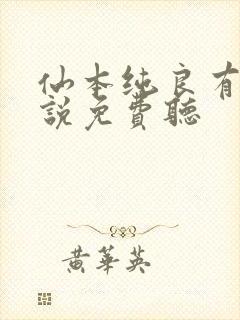 仙本纯良有
說免費聽
黄華英